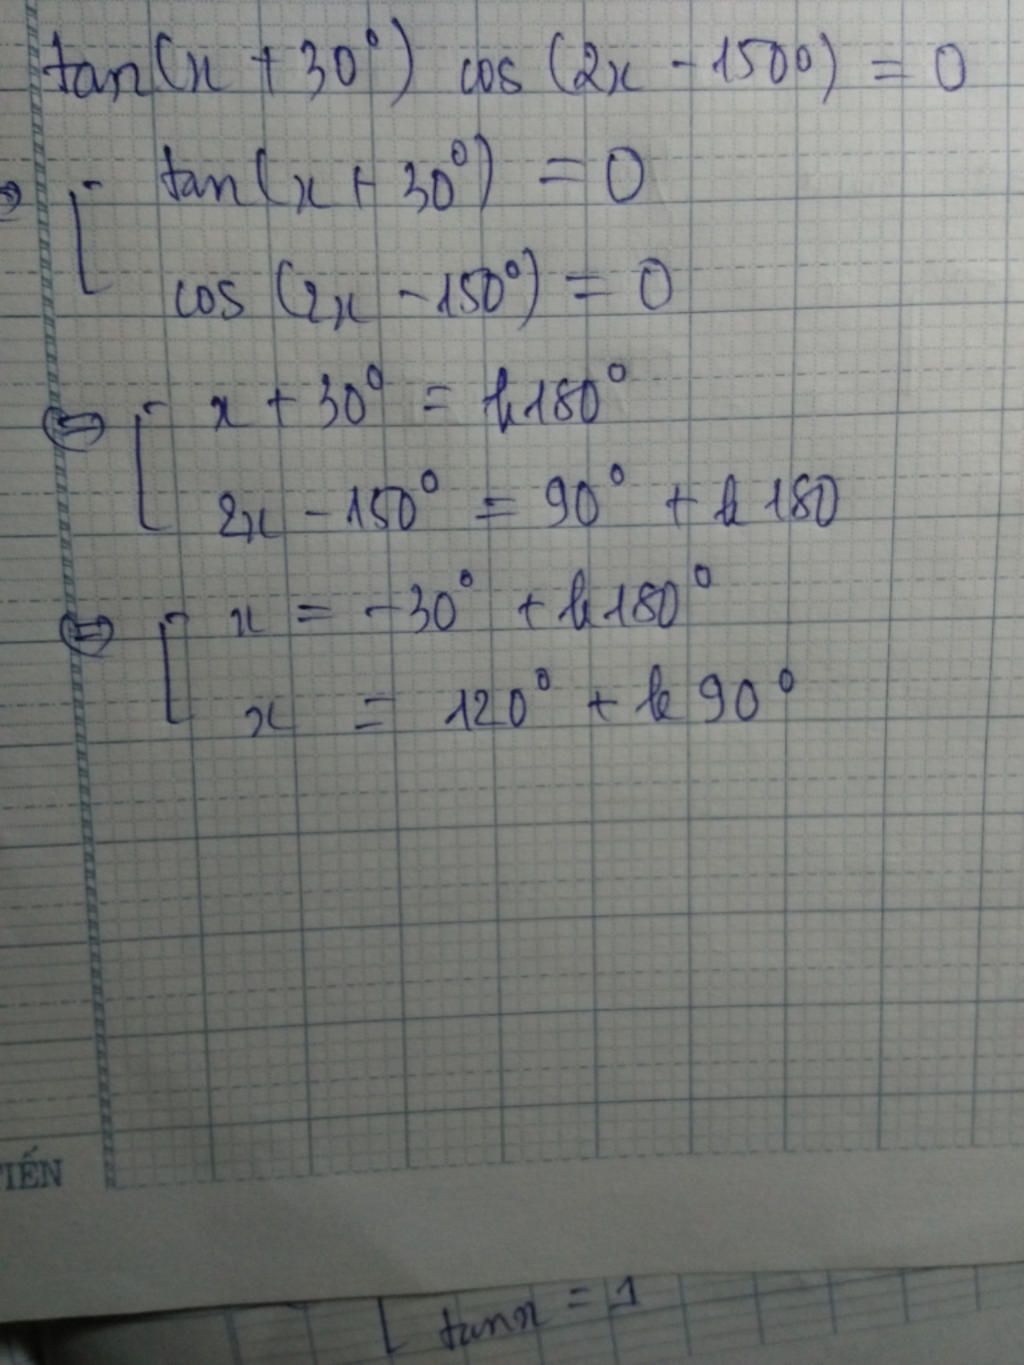 tan(x + 30°) cos(2x - 150°) = 0
⇔ [ tan(x + 30°) = 0
cos(2x - 150°) = 0
⇔ [ x + 30° = k180°
2x - 150° = 90° + k180
⇔ [ x = -30° + k180°
x = 120° + k90°
TIẾN
[ tanx = 1